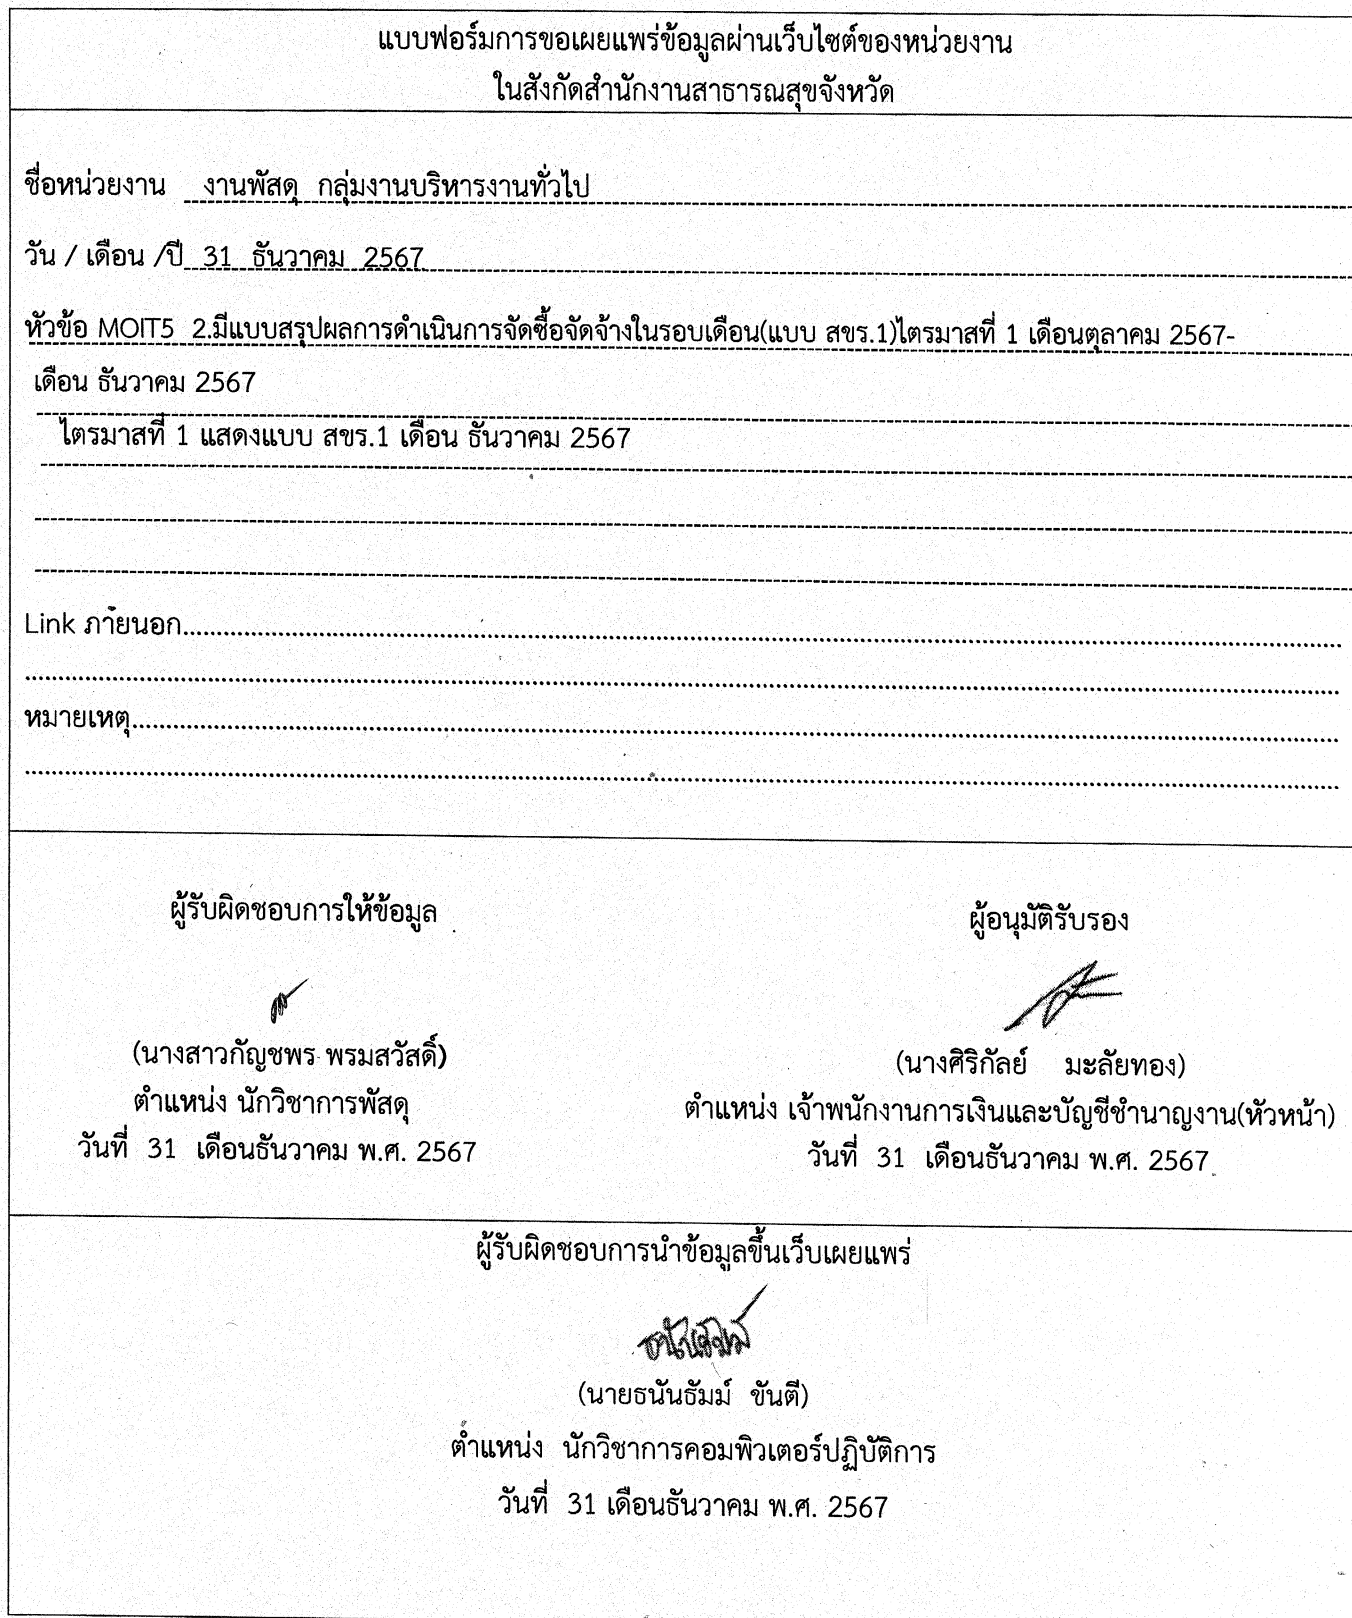 แบบฟอร์มการขอเผยแพร่ข้อมูลผ่านเว็บไซต์ของหน่วยงาน
ในสังกัดสำนักงานสาธารณสุขจังหวัด
ชื่อหน่วยงาน งานพัสดุ กลุ่มงานบริหารงานทั่วไป
วัน / เดือน /ปี 31 ธันวาคม 2567
หัวข้อ MOIT5 2.มีแบบสรุปผลการดำเนินการจัดซื้อจัดจ้างในรอบเดือน(แบบ สขร.1)ไตรมาสที่ 1 เดือนตุลาคม 2567-
เดือน ธันวาคม 2567
ไตรมาสที่ 1 แสดงแบบ สขร.1 เดือน ธันวาคม 2567
Link ภายนอก
หมายเหตุ
ผู้รับผิดชอบการให้ข้อมูล
(นางสาวกัญชพร พรมสวัสดิ์)
ตำแหน่ง นักวิชาการพัสดุ
วันที่ 31 เดือนธันวาคม พ.ศ. 2567
ผู้อนุมัติรับรอง
(นางศิริกัลย์ มะลัยทอง)
ตำแหน่ง เจ้าพนักงานการเงินและบัญชีชำนาญงาน(หัวหน้า)
วันที่ 31 เดือนธันวาคม พ.ศ. 2567
ผู้รับผิดชอบการนำข้อมูลขึ้นเว็บเผยแพร่
ธนันธัมม์
(นายธนันธัมม์ ขันตี)
ตำแหน่ง นักวิชาการคอมพิวเตอร์ปฏิบัติการ
วันที่ 31 เดือนธันวาคม พ.ศ. 2567